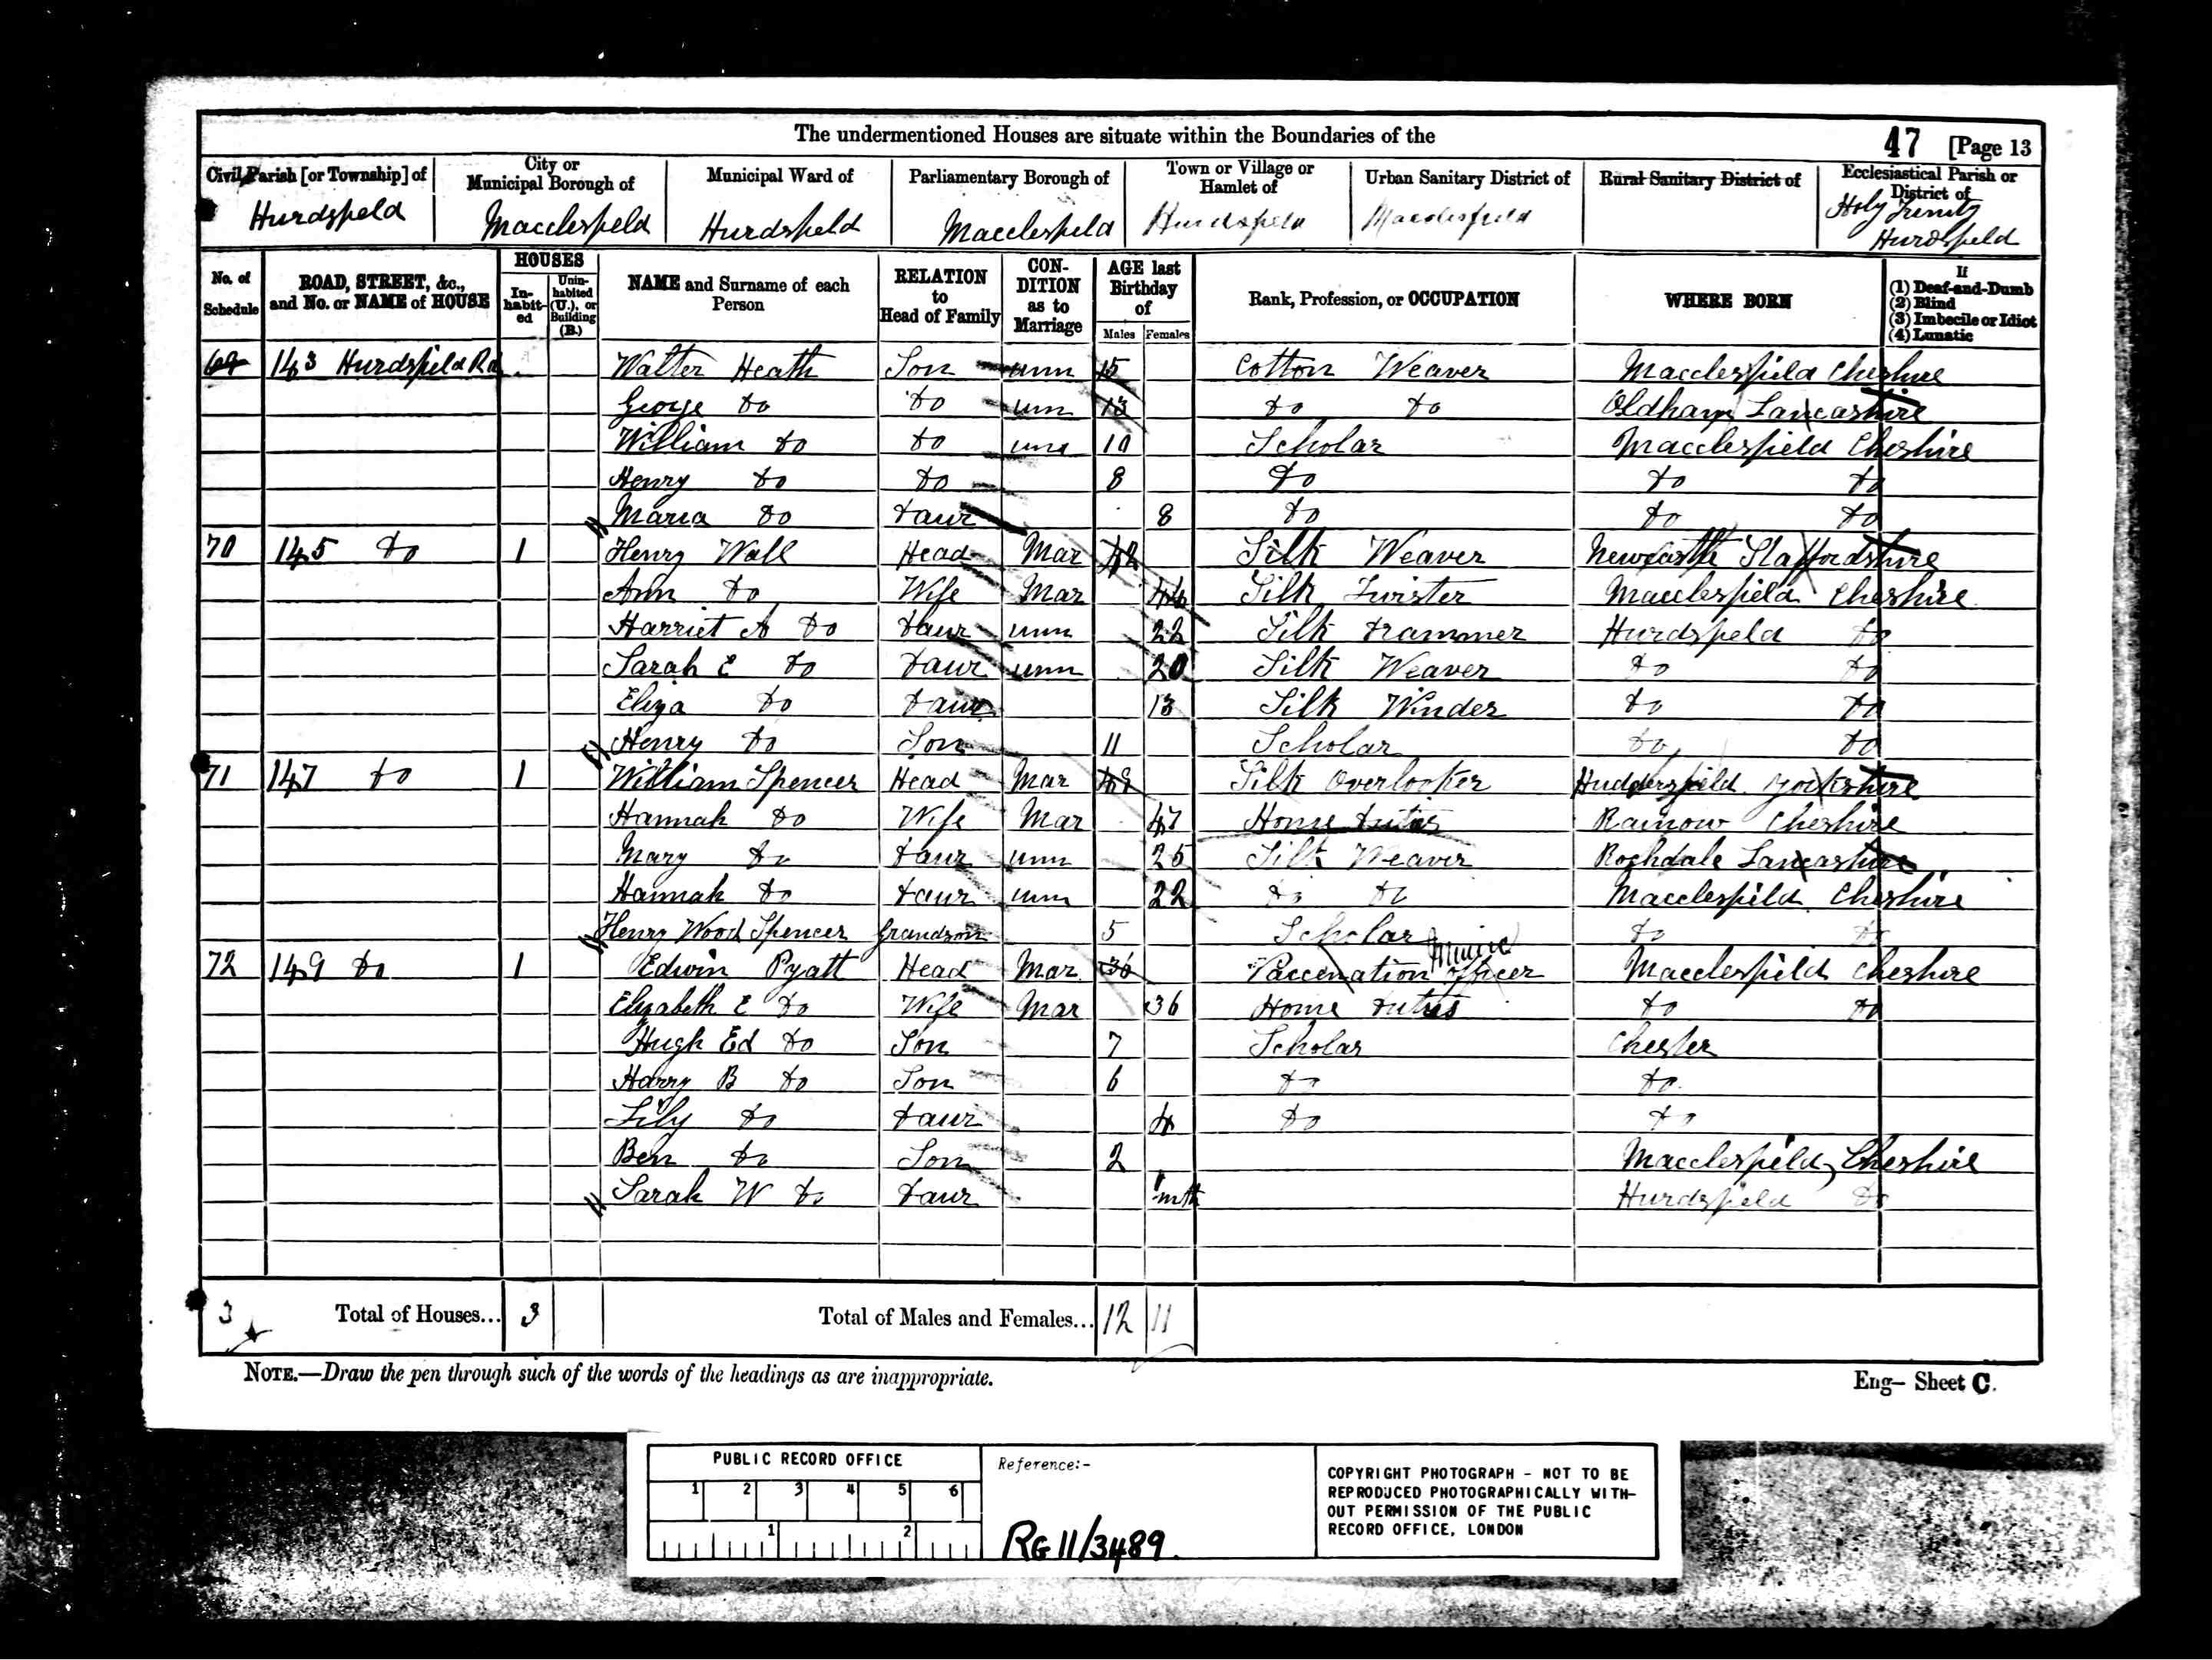 The undermentioned Houses are situate within the Boundaries of the
47 [Page 13
Civil Parish [or Township] of
City or Municipal Borough of
Municipal Ward of
Parliamentary Borough of
Town or Village or Hamlet of
Urban Sanitary District of
Rural Sanitary District of
Ecclesiastical Parish or District of
Hurdsfield Macclesfield Hurdsfield Macclesfield Hurdsfield Macclesfield Holy Trinity Hurdsfield
No. of Schedule
ROAD, STREET, &c., and No. or NAME of HOUSE
HOUSES
In-habit-ed
Unin-habited (U.), or Building (B.)
NAME and Surname of each Person
RELATION to Head of Family
CON-DITION as to Marriage
AGE last Birthday of
Males Females
Rank, Profession, or OCCUPATION
WHERE BORN
If
(1) Deaf-and-Dumb
(2) Blind
(3) Imbecile or Idiot
(4) Lunatic
69 143 Hurdsfield Rd Walter Heath Son unm 15 Cotton Weaver Macclesfield Cheshire
George Do Do unm 13 Do Do Oldham Lancashire
William Do Do unm 10 Scholar Macclesfield Cheshire
Henry Do Do 8 Do Do Do
Maria Do Daur 8 Do Do Do
70 145 Do 1 Henry Wall Head Mar 42 Silk Weaver Newcastle Staffordshire
Ann Do Wife Mar 44 Silk Twister Macclesfield Cheshire
Harriet A Do Daur unm 22 Silk Trammer Hurdsfield Do
Sarah E Do Daur unm 20 Silk Weaver Do Do
Eliza Do Daur 13 Silk Winder Do Do
Henry Do Son 11 Scholar Do Do
71 147 Do 1 William Spencer Head Mar Silk Overlooker Huddersfield Yorkshire
Hannah Do Wife Mar 47 Home Duties Rainow Cheshire
Mary Do Daur unm 25 Silk Weaver Rochdale Lancashire
Hannah Do Daur unm 22 Do Do Macclesfield Cheshire
Henry Wood Spencer Grandson 5 Scholar Do Do
72 149 Do 1 Edwin Pyatt Head Mar 36 Vaccination Officer Macclesfield Cheshire
Elizabeth E Do Wife Mar 36 Home Duties Do Do
Hugh Ed Do Son 7 Scholar Chester
Harry B Do Son 6 Do Do
Lily Do Daur 4 Do Do
Ben Do Son 2 Macclesfield, Cheshire
Sarah W Do Daur 1 mth Hurdsfield Do
3 Total of Houses... 3 Total of Males and Females... 12 11
NOTE.—Draw the pen through such of the words of the headings as are inappropriate.
Eng— Sheet C.
PUBLIC RECORD OFFICE
1 2 3 4 5 6
1 2
Reference:-
RG 11/3489
COPYRIGHT PHOTOGRAPH - NOT TO BE
REPRODUCED PHOTOGRAPHICALLY WITH-
OUT PERMISSION OF THE PUBLIC
RECORD OFFICE, LONDON